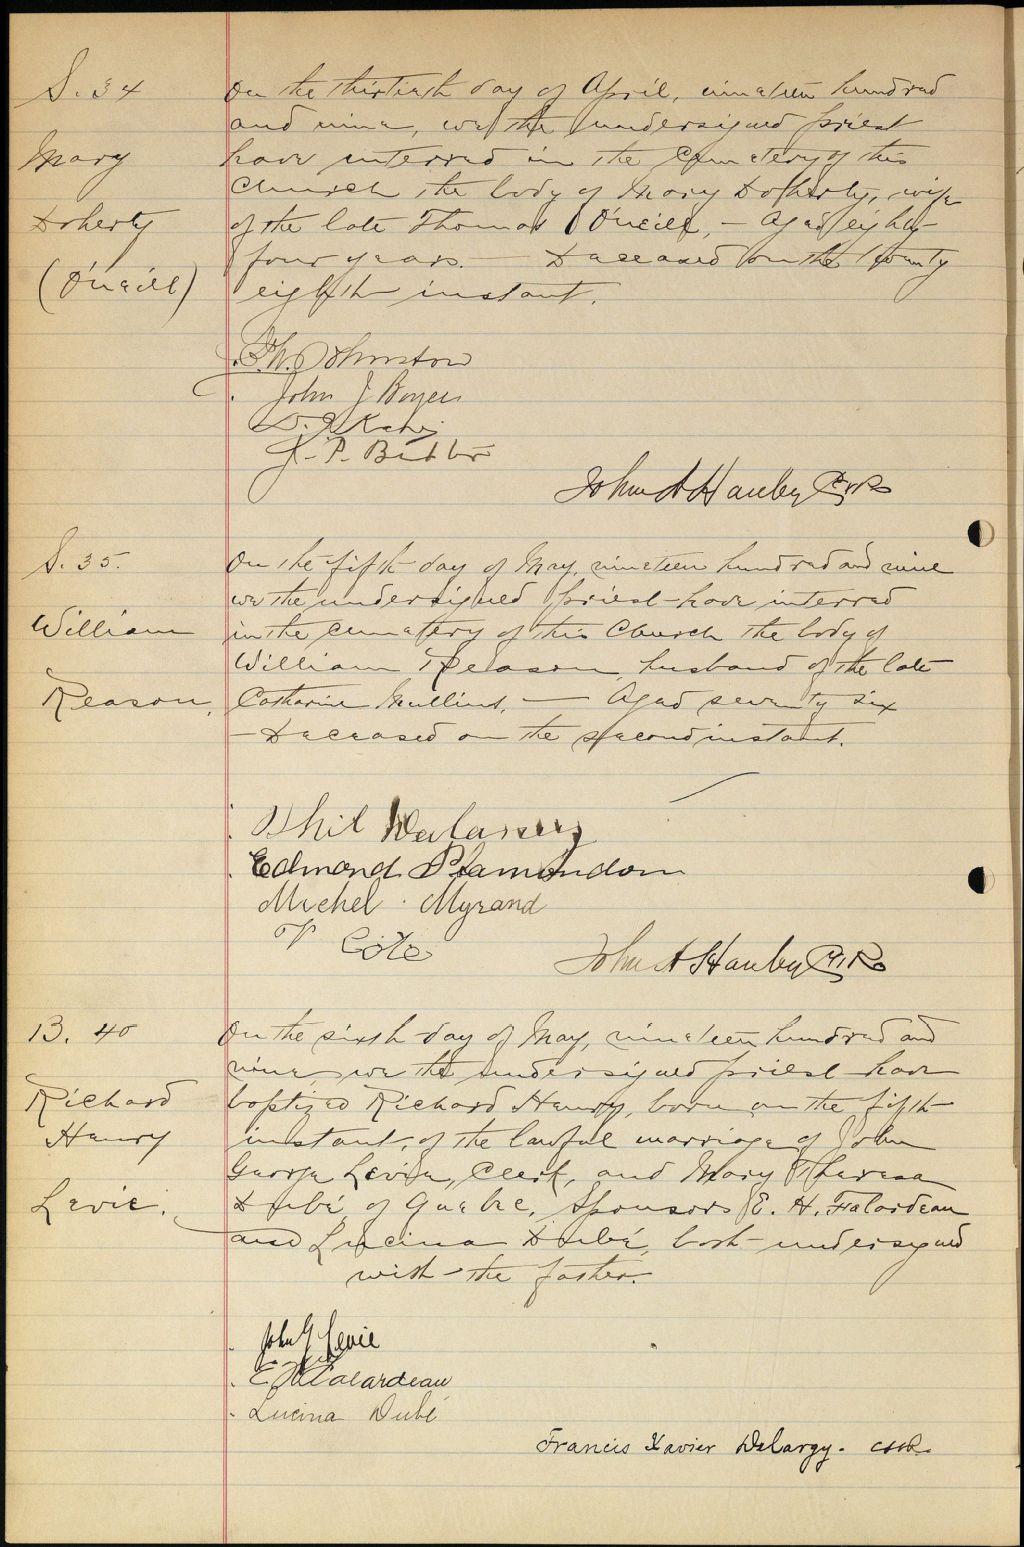 S. 34
Mary
Doherty
(O'Neill)
On the thirtieth day of April, nineteen hundred
and nine, we the undersigned priest
have interred in the Cemetery of this
Church the body of Mary Doherty, wife
of the late Thomas O'Neill, — Aged eighty-
four years. — Deceased on the twenty
eighth instant.
Johnston
John J Boyce
J. P. Butler
John A Hanley CSSR
S. 35.
William
Reason,
On the fifth day of May, nineteen hundred and nine
we the undersigned priest have interred
in the cemetery of this Church the body of
William Reason, husband of the late
Catharine Mullins, — Aged seventy six
— Deceased on the second instant.
Phil Delaney
Edmond Plamondon
Michel Myrand
Côté
John A Hanley CSSR
B. 40
Richard
Henry
Levie.
On the sixth day of May, nineteen hundred and
nine, we the undersigned priest have
baptized Richard Henry, born on the fifth
instant, of the lawful marriage of John
George Levie, Clerk, and Mary Theresa
Dubé of Quebec. Sponsors E. H. Falardeau
and Lucina Dubé, both undersigned
with the father.
John G Levie
E H Falardeau
Lucina Dubé
Francis Xavier Delargy. CSSR.